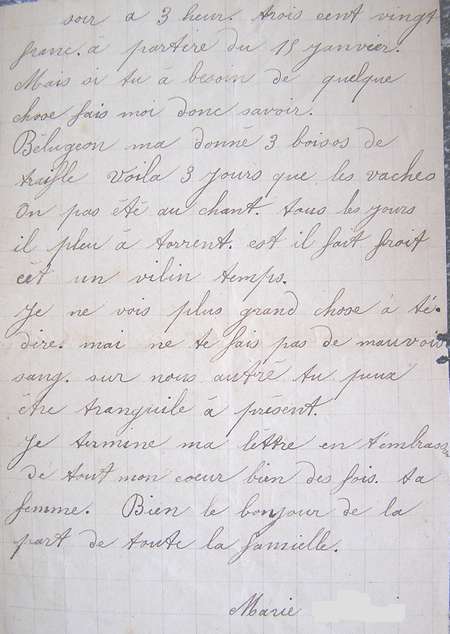 soir a 3 heur. trois cent vingt
franc. á partire du 15 janvier.
Mais si tu á besoin de quelque
chose fais moi donc savoir.
Bélugeon ma donné 3 boisos de
traifle Voila 3 jours que les vaches
On pas été au chant. tous les jours
il pleu á torrent. est il fait froit
cét un vilin temps.
Je ne vois plus grand chose á té.
dire. mai ne te fais pas de mauvois
sang. sur nous autre tu peux
être tranquile á présent.
Je termine ma léttre en t'embrass
de tout mon coeur bien des fois. ta
femme. Bien le bonjour de la
part de toute la famielle.
Marie